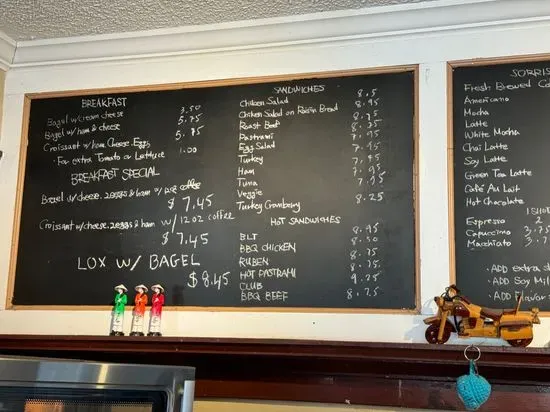 BREAKFAST
Bagel w/cream cheese 3.50
Bagel w/ham & cheese 5.75
Croissant w/ham. Cheese. Eggs 5.75
• For extra Tomato or Lettuce 1.00
BREAKFAST SPECIAL
Bagel w/cheese. 2eggs & ham w/ coffee
$7.45
Croissant w/cheese. 2eggs & ham w/ 12oz coffee
$7.45
LOX W/ BAGEL
$8.45
SANDWICHES
Chicken Salad 8.5
Chicken Salad on Raisin Bread 8.95
Roast Beef 8.75
Pastrami 8.75
Egg Salad 7.95
Turkey 7.95
Ham 7.45
Tuna 7.95
Veggie 7.95
Turkey Cranberry 8.25
HOT SANDWICHES
BLT 8.95
BBQ CHICKEN 8.50
RUBEN 8.75
HOT PASTRAMI 8.75
CLUB 9.25
BBQ BEEF 8.75
SORRIS
Fresh Brewed Co
Americano
Mocha
Latte
White Mocha
Chai Latte
Soy Latte
Green Tea Latte
Café Au Lait
Hot Chocolate
1 SHOT
Espresso 2
Capuccino 3.75
Macchiato 3.75
• ADD extra
• ADD Soy Mil
• ADD Flavor